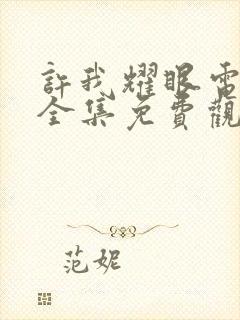 許我耀眼電
全集免費觀
范妮